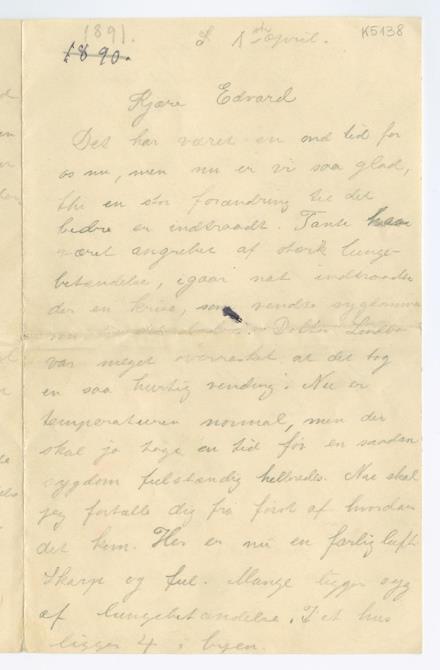 1891.
1890.
d. 1ste April.
K5138
Kjære Edvard
Det har været en ond tid for
os nu, men nu er vi saa glad,
thi en stor forandring til det
bedre er indtraadt. Tante har
været angrebet af stærk lunge-
betændelse, igaar nat indtraadte
der en krise, som vendte sygdommen
Doktor
var meget overrasket at det tog
en saa hurtig vending. Nu er
temperaturen normal, men der
skal jo tage en tid før en saadan
sygdom fulstændig helbredes. Nu skal
jeg fortælle dig fra først af hvordan
det kom. Her er nu en farlig luft
skarp og ful. Mange ligger syg
af lungebetændelse. I et hus
ligger 4 i byen.